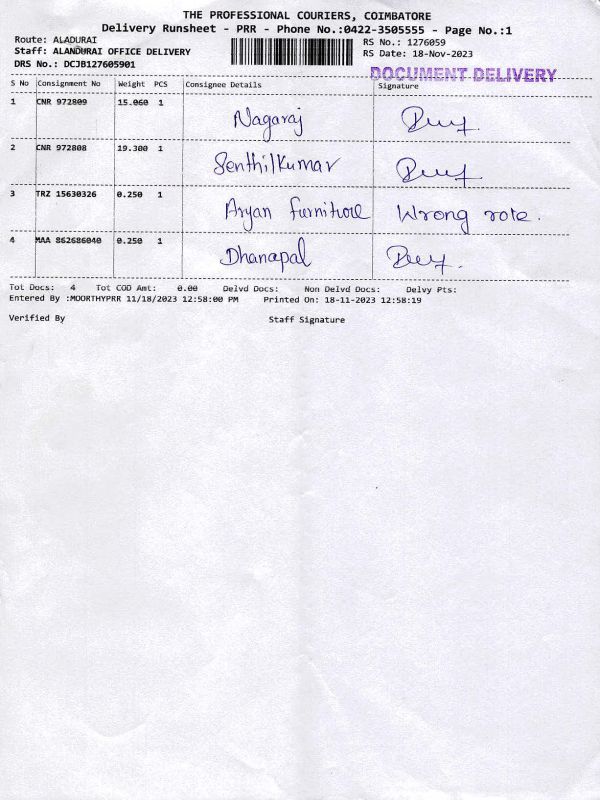 THE PROFESSIONAL COURIERS, COIMBATORE
Delivery Runsheet - PRR - Phone No.:0422-3505555 - Page No.:1
Route: ALADURAI
RS No.: 1276059
Staff: ALANDURAI OFFICE DELIVERY
RS Date: 18-Nov-2023
DRS No.: DCJB127605901
DOCUMENT DELIVERY
S No Consignment No Weight PCS Consignee Details Signature
1 CNR 972809 15.060 1 Nagaraj
2 CNR 972808 19.300 1 Senthilkumar
3 TRZ 15630326 0.250 1 Aryan furniture Wrong rote.
4 MAA 862686040 0.250 1 Dhanapal
Tot Docs: 4 Tot COD Amt: 0.00 Delvd Docs: Non Delvd Docs: Delvy Pts:
Entered By :MOORTHYPRR 11/18/2023 12:58:00 PM Printed On: 18-11-2023 12:58:19
Verified By Staff Signature